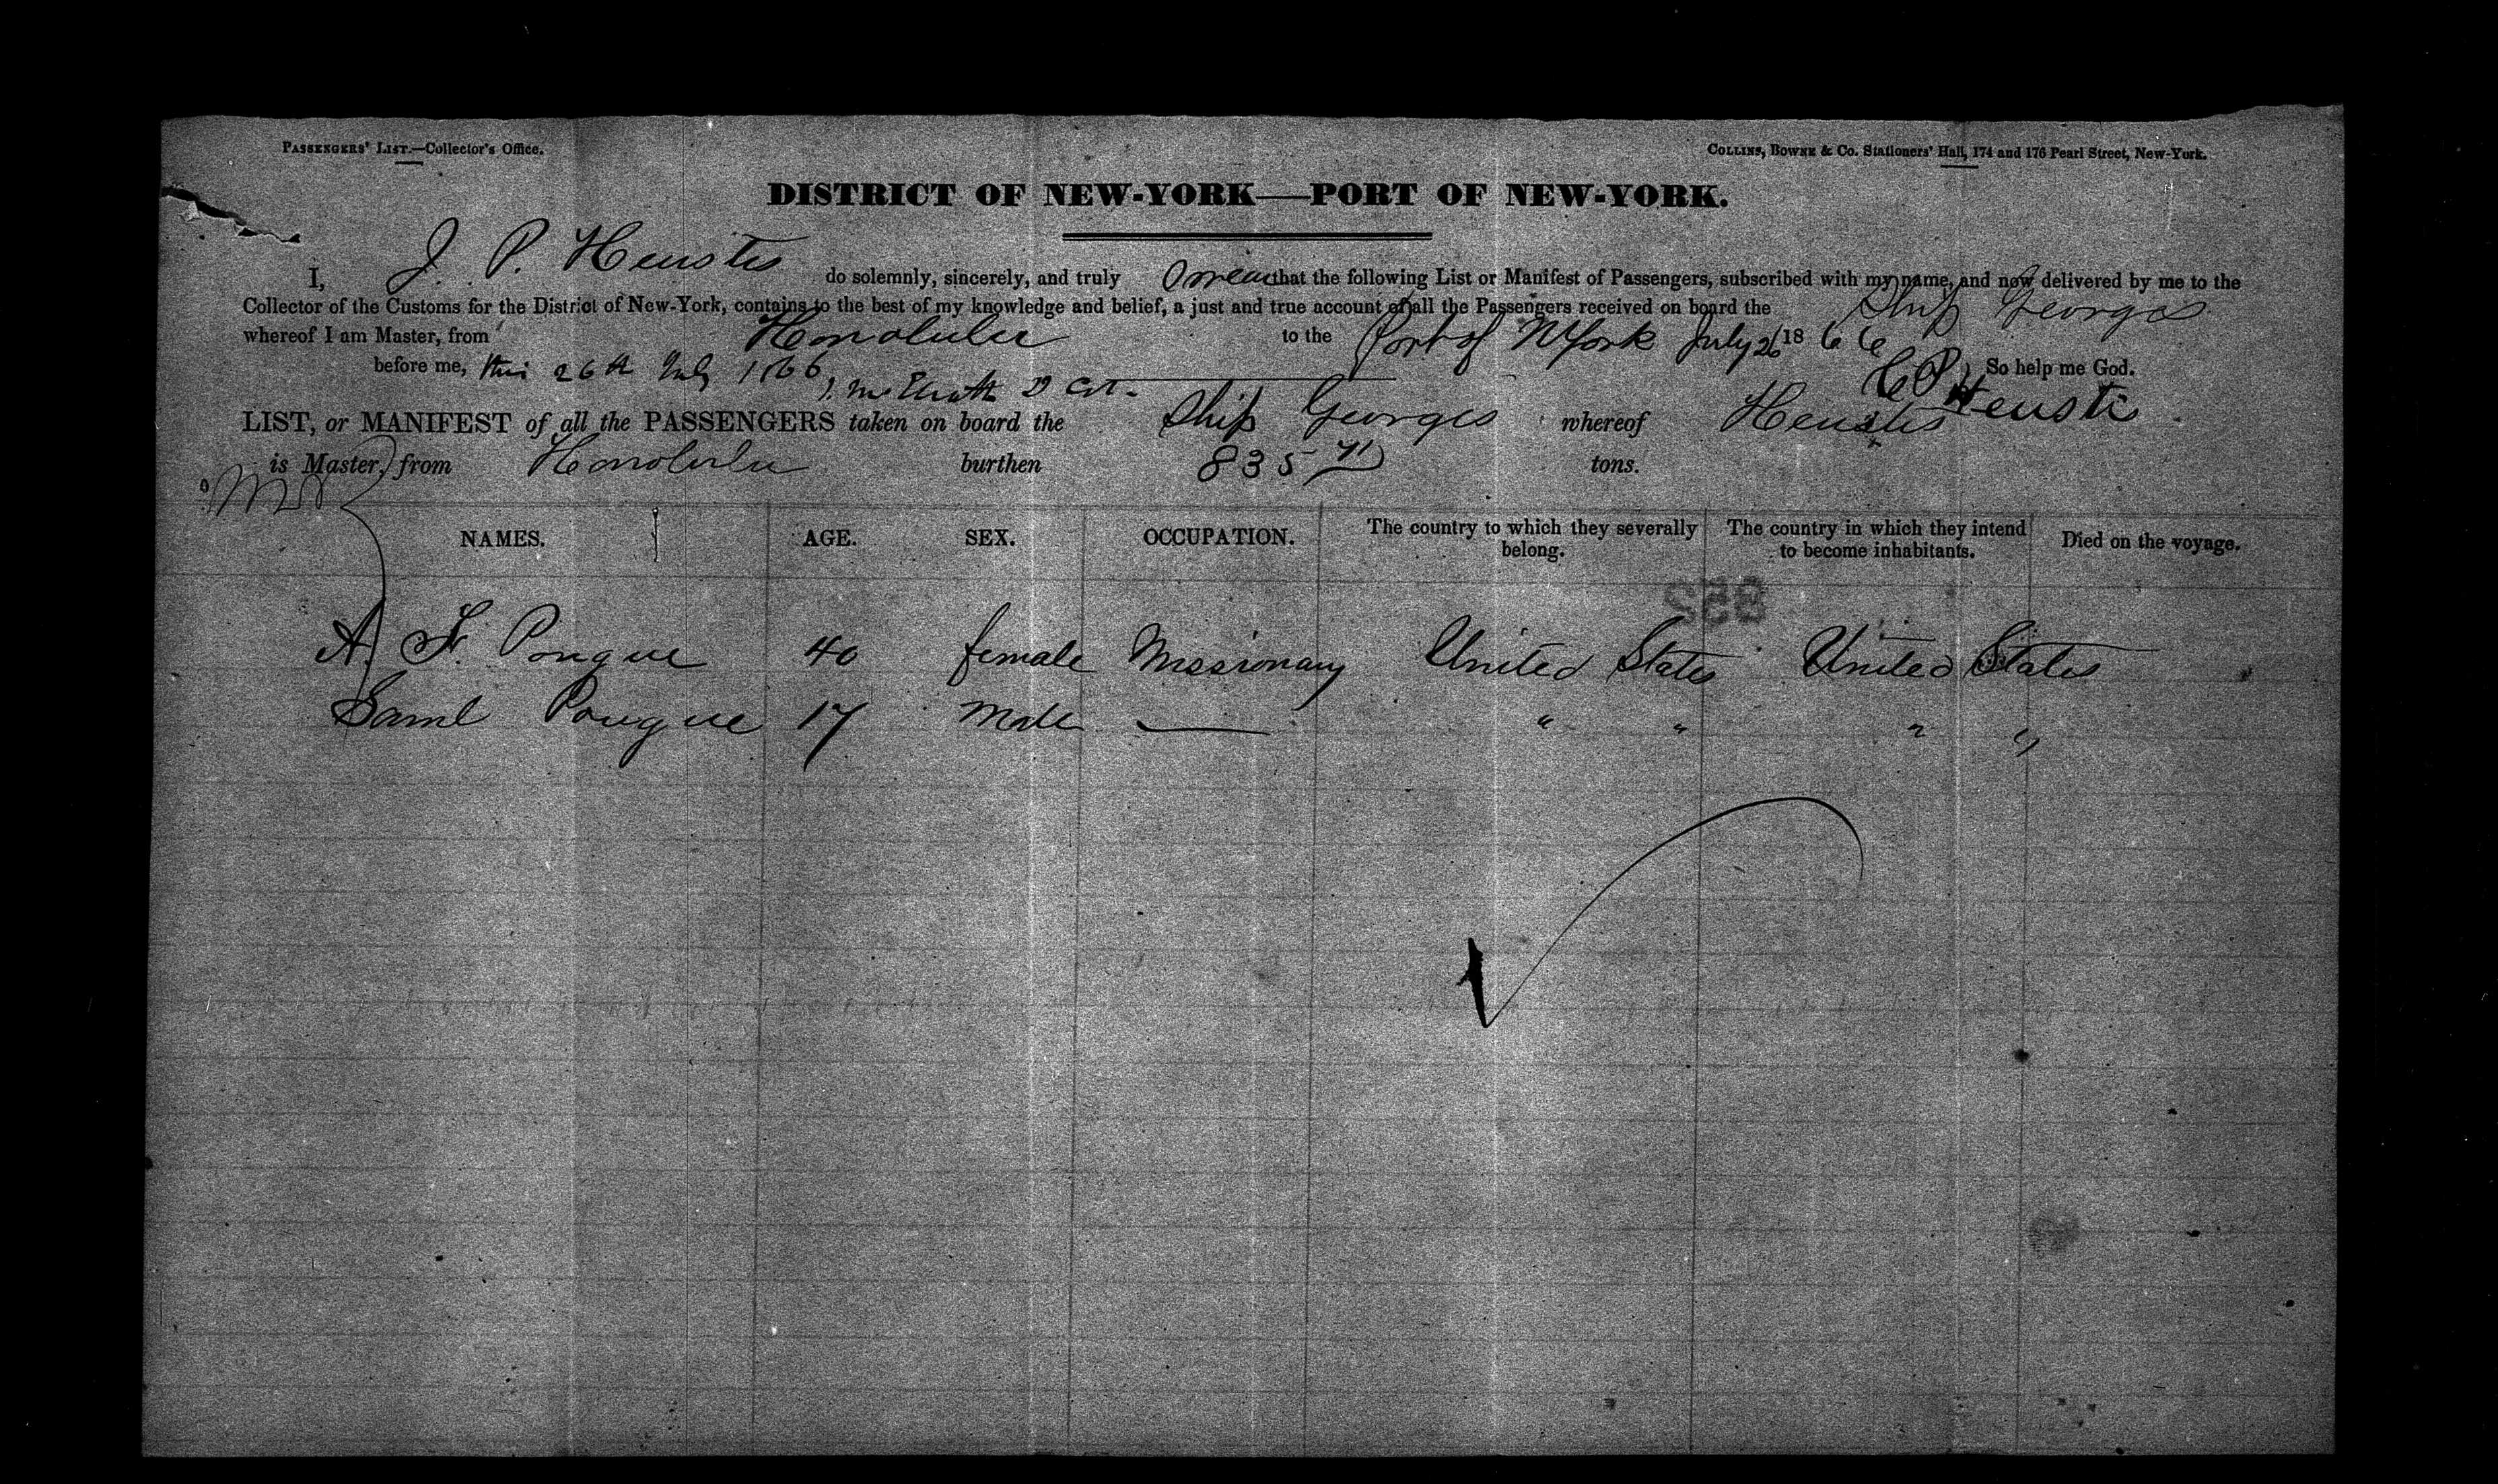 PASSENGERS' LIST.—Collector's Office.
COLLINS, BOWNE & Co. Stationers' Hall, 174 and 176 Pearl Street, New-York.
DISTRICT OF NEW-YORK—PORT OF NEW-YORK.
I, J. P. Heustis do solemnly, sincerely, and truly that the following List or Manifest of Passengers, subscribed with my name, and now delivered by me to the
Collector of the Customs for the District of New-York, contains to the best of my knowledge and belief, a just and true account of all the Passengers received on board the Ship Georges
whereof I am Master, from Honolulu to the Port of N York July 26 1866 So help me God.
before me, this 26th July 1866
Heustis
LIST, or MANIFEST of all the PASSENGERS taken on board the Ship Georges whereof Heustis
is Master, from Honolulu burthen 835 71 tons.
NAMES. AGE. SEX. OCCUPATION. The country to which they severally belong. The country in which they intend to become inhabitants. Died on the voyage.
852
A. F. Pongue 40 female Missionary United States United States
Saml Pongue 17 Male — " " " "